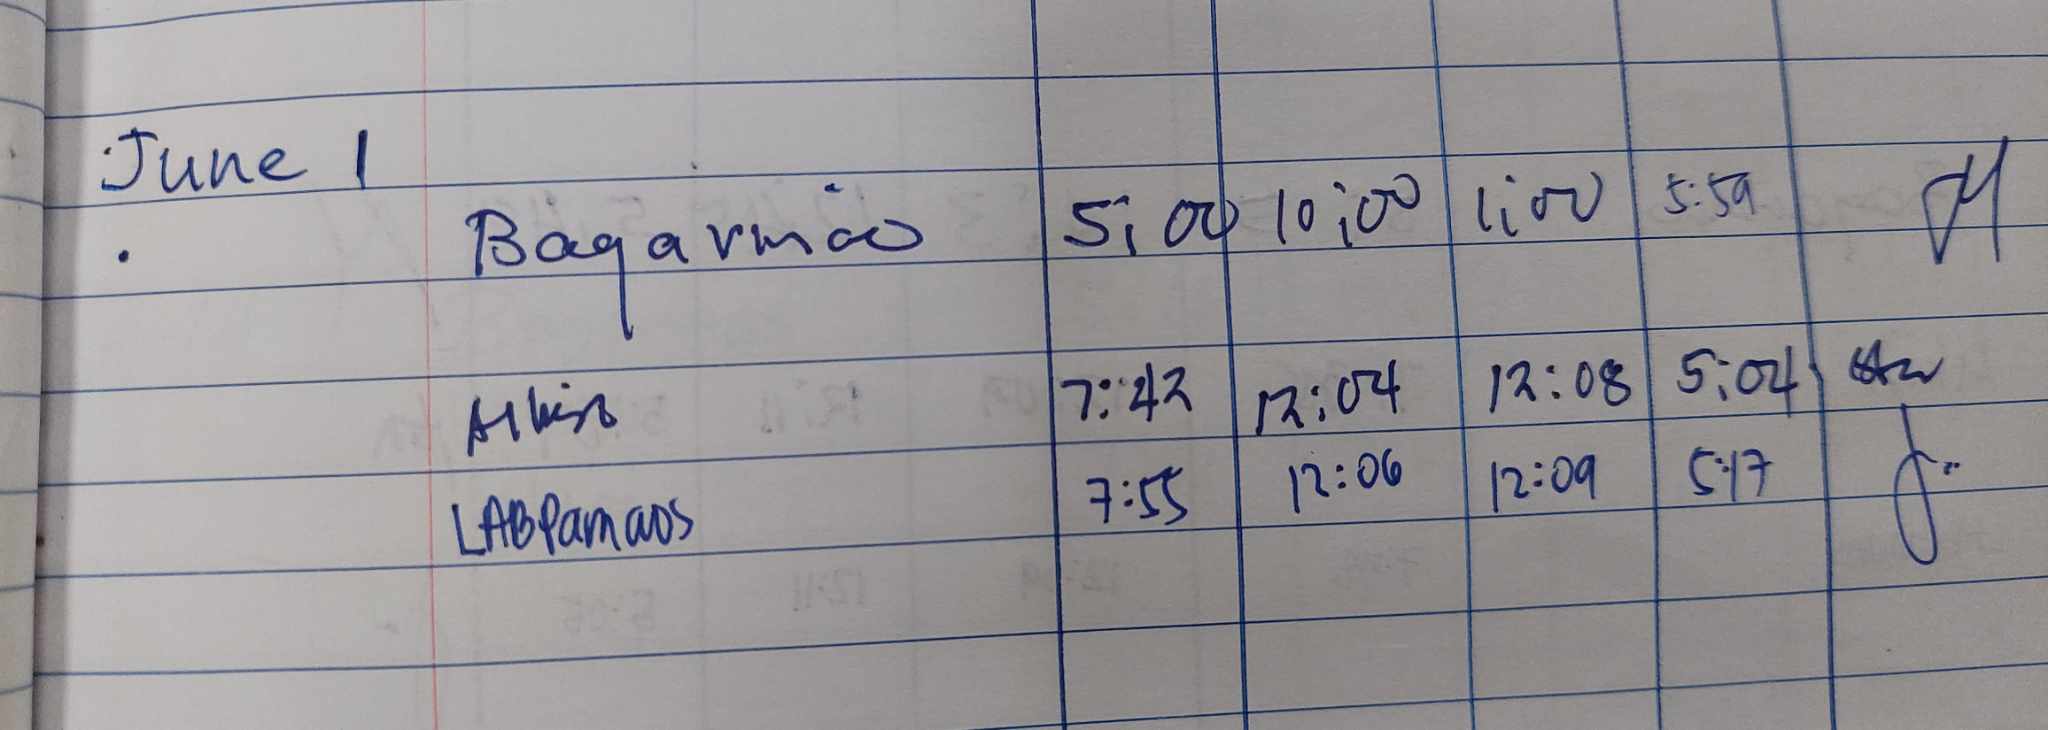 June 1
5:00 10:00 1:00 5:59
7:42 12:04 12:08 5:04
LABPamaos 7:55 12:06 12:09 5:17